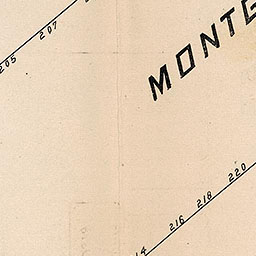 205 207
MONTG
14 216 218 220